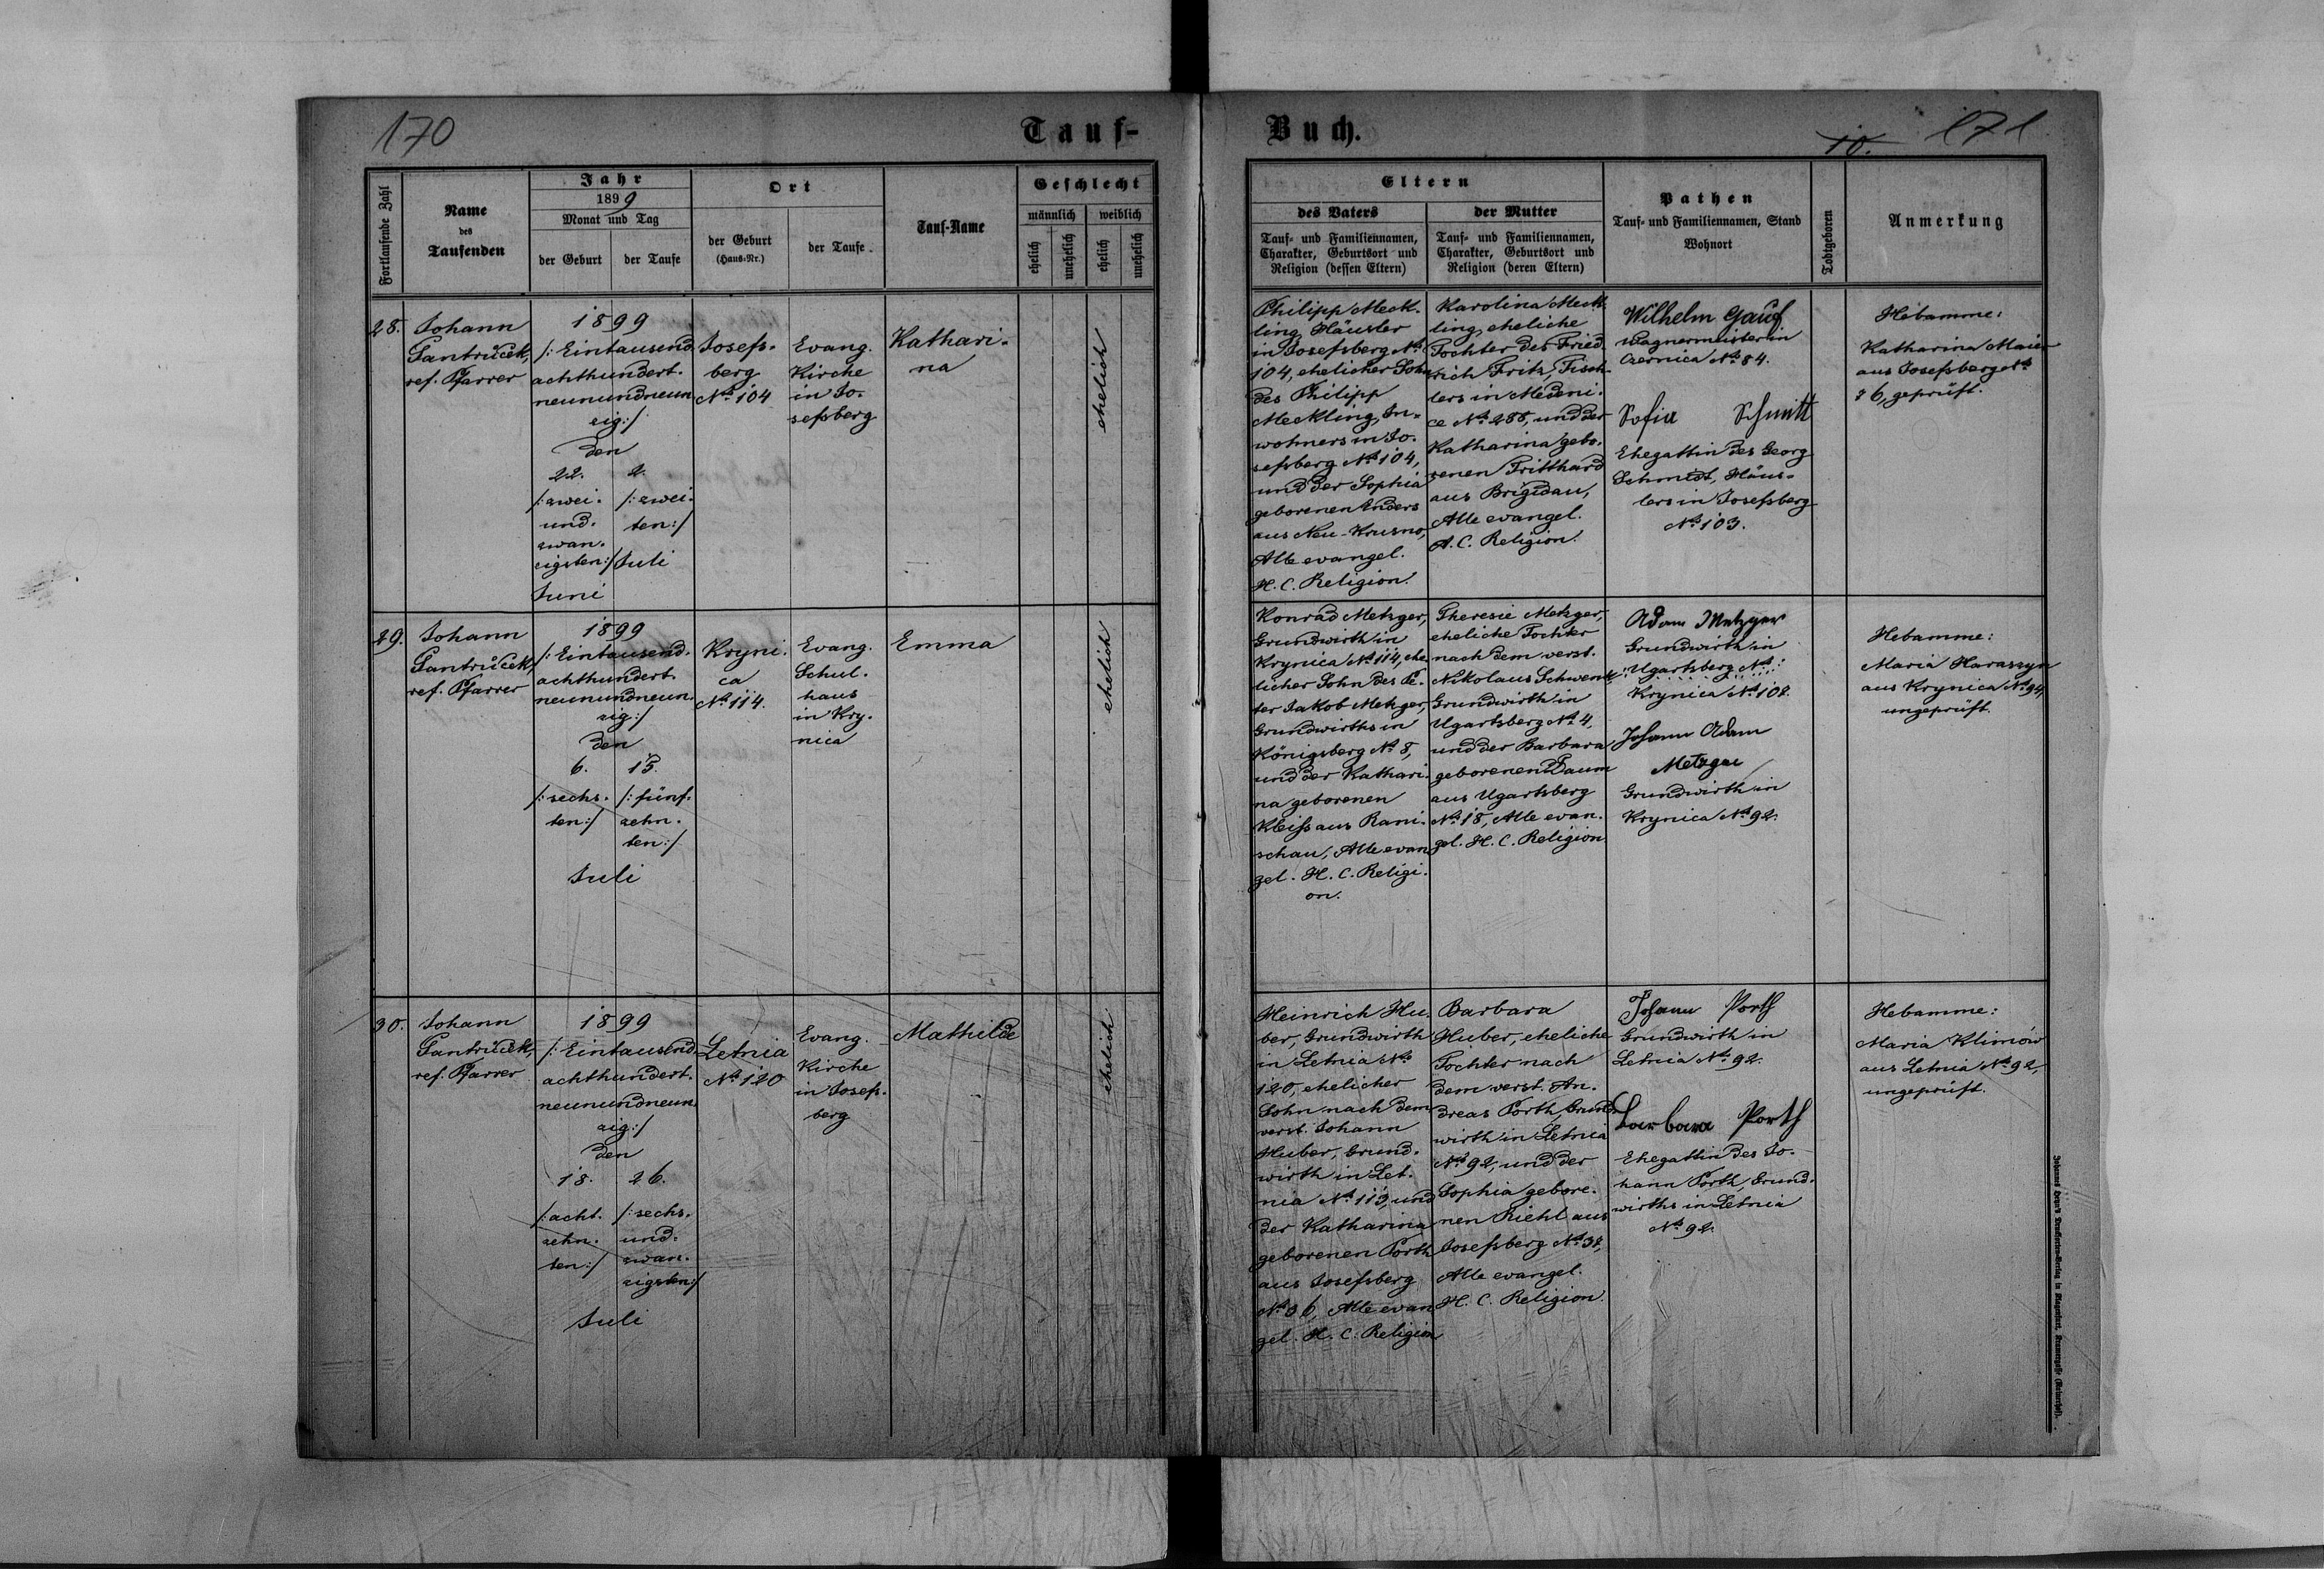 170
Tauf-
Fortlaufende Zahl
Name
des
Taufenden
Jahr
1899
Monat und Tag
der Geburt
der Taufe
Ort
der Geburt
(Haus-Nr.)
der Taufe
Tauf-Name
Geschlecht
männlich
weiblich
ehelich
unehelich
ehelich
unehelich
28.
Johann
Pantrůček,
ref. Pfarrer
1899
/: Eintausend
achthundert.
neunundneun
zig :/
den
22.
/: zwei.
und.
zwan.
zigsten :/
Juni
2.
/: zwei.
ten :/
Juli
Josefs.
berg
No 104
Evang.
Kirche
in Jo.
sefsberg
Kathari.
na
ehelich
29.
Johann
Pantrůček,
ref. Pfarrer
1899
/: Eintausend.
achthundert.
neunundneun.
zig :/
den
6.
/: sechs.
ten :/
15.
/: fünf.
zehn.
ten :/
Juli
Kryni.
ca
No 114.
Evang.
Schul.
haus
in Kry.
nica
Emma
ehelich
30.
Johann
Pantrůček,
ref. Pfarrer
1899
/: Eintausend.
achthundert.
neunundneun.
zig :/
den
18.
/: acht.
zehn.
ten :/
26.
/: sechs.
und.
zwan.
zigsten :/
Juli
Letnia
No 120
Evang.
Kirche
in Josefs.
berg
Mathilde
ehelich
Buch.
10.
171
Eltern
des Vaters
Tauf- und Familiennamen,
Charakter, Geburtsort und
Religion (dessen Eltern)
der Mutter
Tauf- und Familiennamen,
Charakter, Geburtsort und
Religion (deren Eltern)
Pathen
Tauf- und Familiennamen, Stand
Wohnort
Todtgeboren
Anmerkung
Philipp Meck.
ling, Häusler
in Josefsberg No
104, ehelicher Sohn
des Philipp
Meckling, In.
wohners in Jo.
sefsberg No 104,
und der Sophia
geborenen Enders
aus Neu-Krusno,
Alle evangel.
H. C. Religion.
Karolina Meck.
ling, eheliche
Tochter des Fried
rich Fritz, Tisch.
lers in Medeni.
ce No 285, und der
Katharina gebo.
renen Fritthard
aus Brigidau,
Alle evangel.
A. C. Religion.
Wilhelm Gauf
Wagnermeister in
Czernica No 84.
Sofia Schmitt
Ehegattin des Georg
Schmidt, Häus.
lers in Josefsberg
No 103.
Hebamme:
Katharina Maier
aus Josefsberg No
86, geprüft.
Konrad Metzger,
Grundwirth in
Krynica No 114, ehe
licher Sohn des Pe.
ter Jakob Metzger,
Grundwirths in
Königsberg No 8,
und der Kathari.
na geborenen
Kleiss aus Rani.
schau, Alle evan
gel. H. C. Religi.
on.
Theresie Metzger,
eheliche Tochter
nach dem verst.
Nikolaus Schwenk
Grundwirth in
Ugartsberg No 4,
und der Barbara
geborenen Daum
aus Ugartsberg
No 18, Alle evan.
gel. H. C. Religion
Adam Metzger
Grundwirth in
Ugartsberg No
Krynica No 108.
Johann Adam
Metzger
Grundwirth in
Krynica No 92.
Hebamme:
Maria Haraszyn
aus Krynica No 94,
ungeprüft.
Heinrich Hu.
ber, Grundwirth
in Letnia No
120, ehelicher
Sohn nach dem
verst. Johann
Huber, Grund.
wirth in Let.
nia No 113, und
der Katharina
geborenen Porth
aus Josefsberg
No 36, Alle evan
gel. H. C. Religion
Barbara
Huber, eheliche
Tochter nach
dem verst. An.
dreas Porth, Grund.
wirth in Letnia
No 92, und der
Sophia gebore.
nen Riehl aus
Josefsberg No 38,
Alle evangel.
H. C. Religion.
Johann Porth
Grundwirth in
Letnia No 92.
Barbara Porth
Ehegattin des Jo.
hann Porth, Grund.
wirths in Letnia
No 92.
Hebamme:
Maria Klimów
aus Letnia No 92,
ungeprüft.